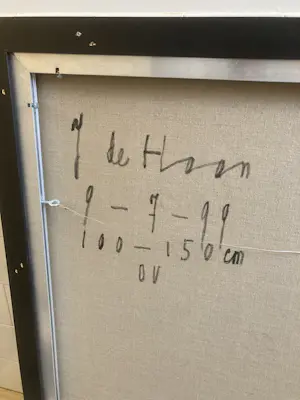 J de Haan
9 - 7 - 99
100 - 150 cm
OV